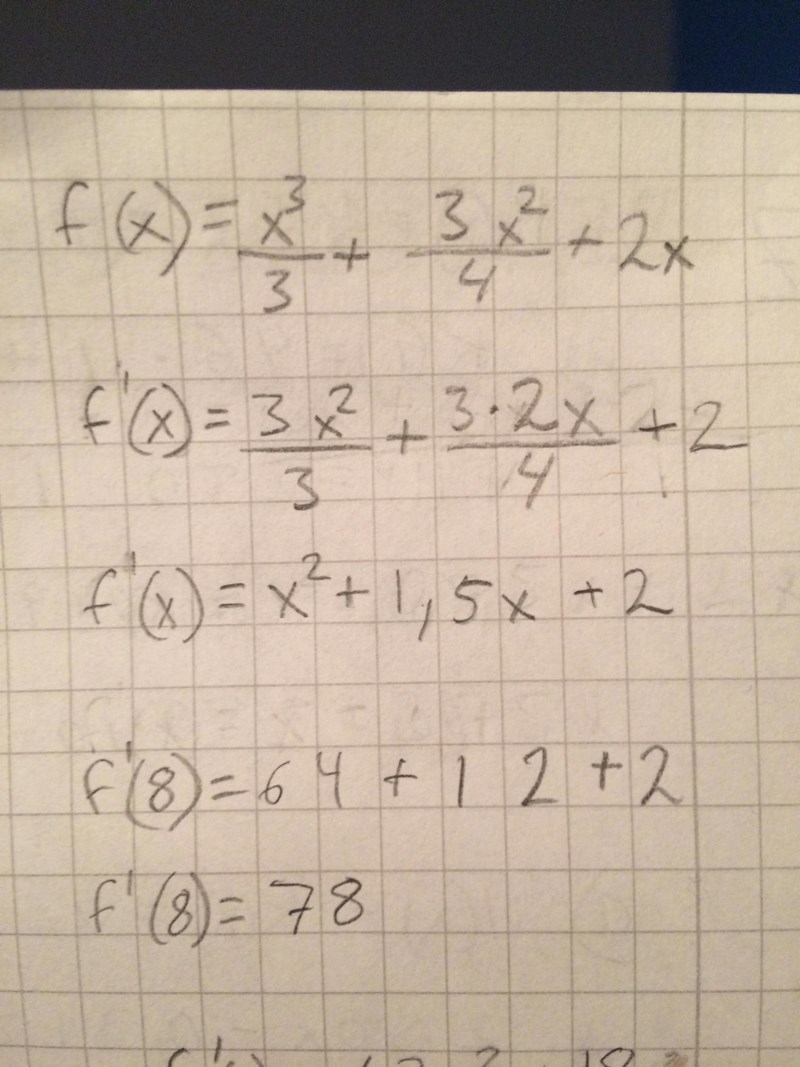 f(x) = x³/3 + 3x²/4 + 2x
f'(x) = 3x²/3 + 3·2x/4 + 2
f'(x) = x² + 1,5x + 2
f'(8) = 64 + 12 + 2
f'(8) = 78